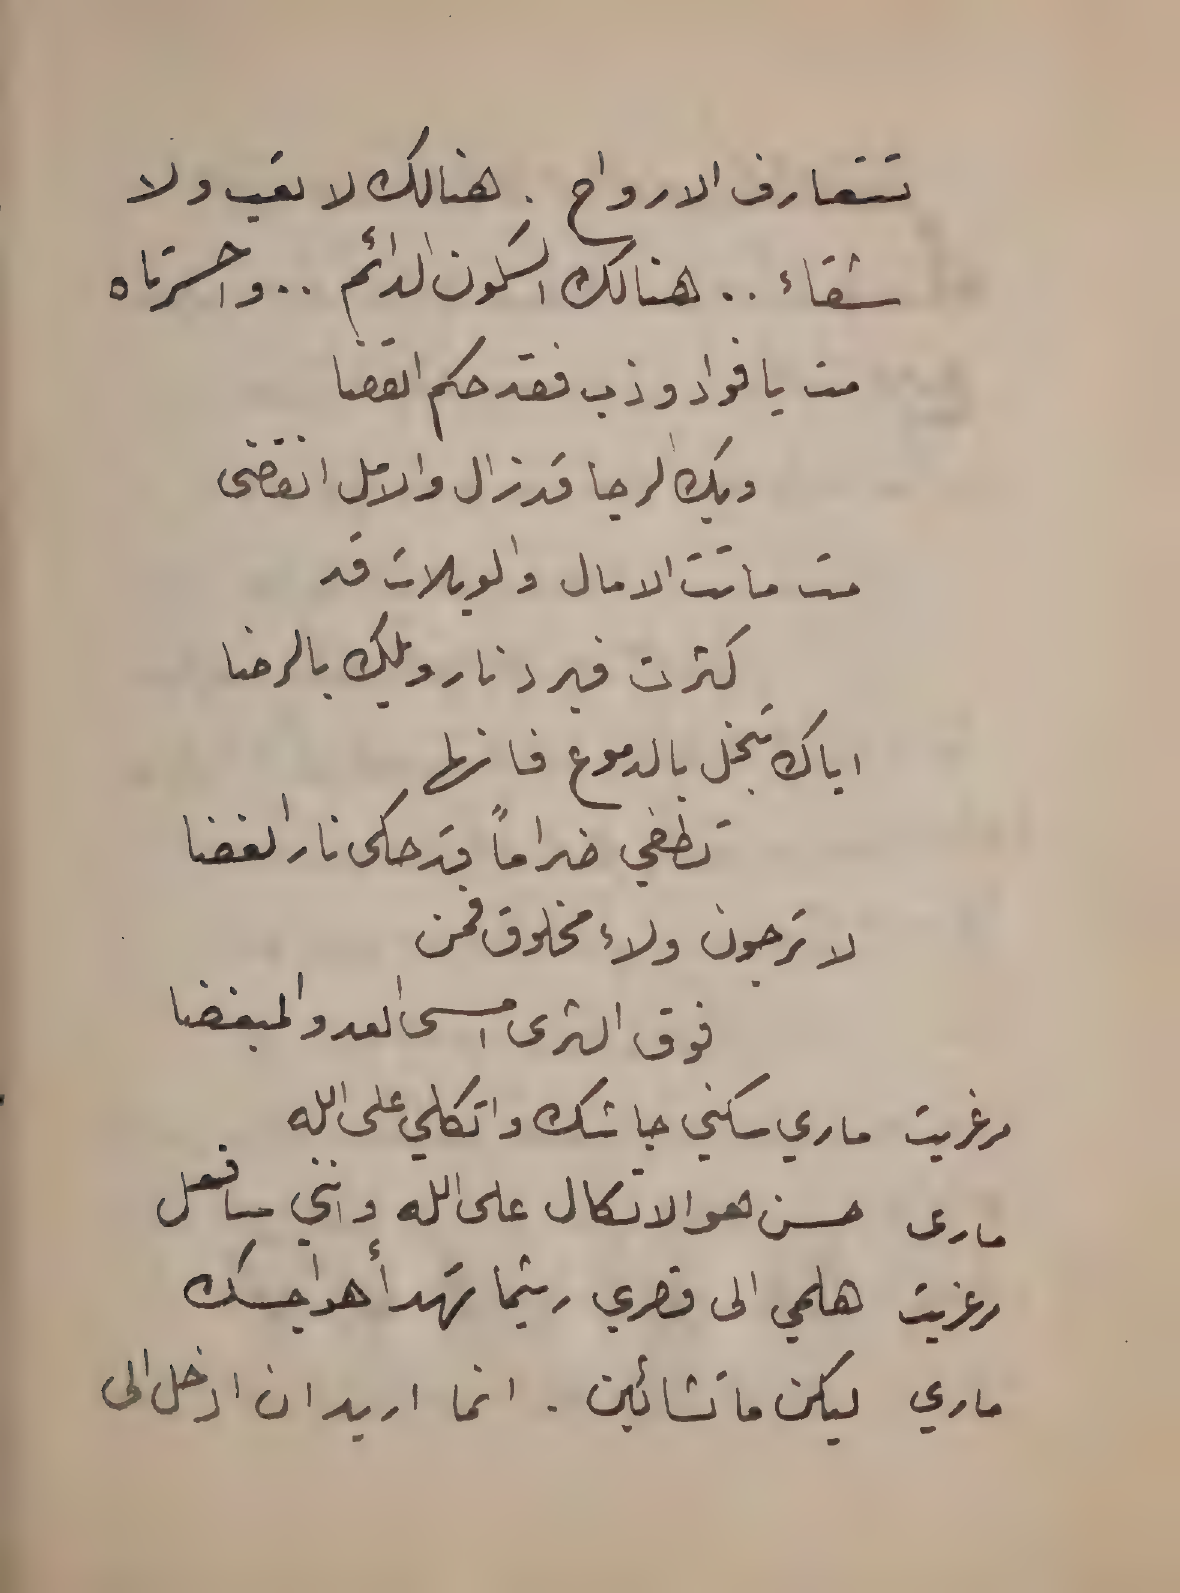 تتعارف الارواح . هنالك لا تعب ولا
شقاء .. هنالك السكون الدائم .. واحسرتاه
مت يا فواد وذب فقد حكم القضا
وبك الرجا قد زال والامل انقضى
مت ماتت الامال والويلات قد
كثرت فبرد نار ويلك بالرضا
اياك تبخل بالدموع فانها
تطفي ضراماً قد حاكى نار الغضا
لا ترجون ولاء مخلوق فمن
فوق الثرى امسى العدو المبغضا
مرغريت ماري سكني جاشك واتكلي على الله
مارى حسن هو الاتكال على الله وانني سافعل
مرغريت هلمي الى قصري ريثما تهدأ هواجسك
ماري ليكن ما تشائين . انما اريد ان ادخل الى